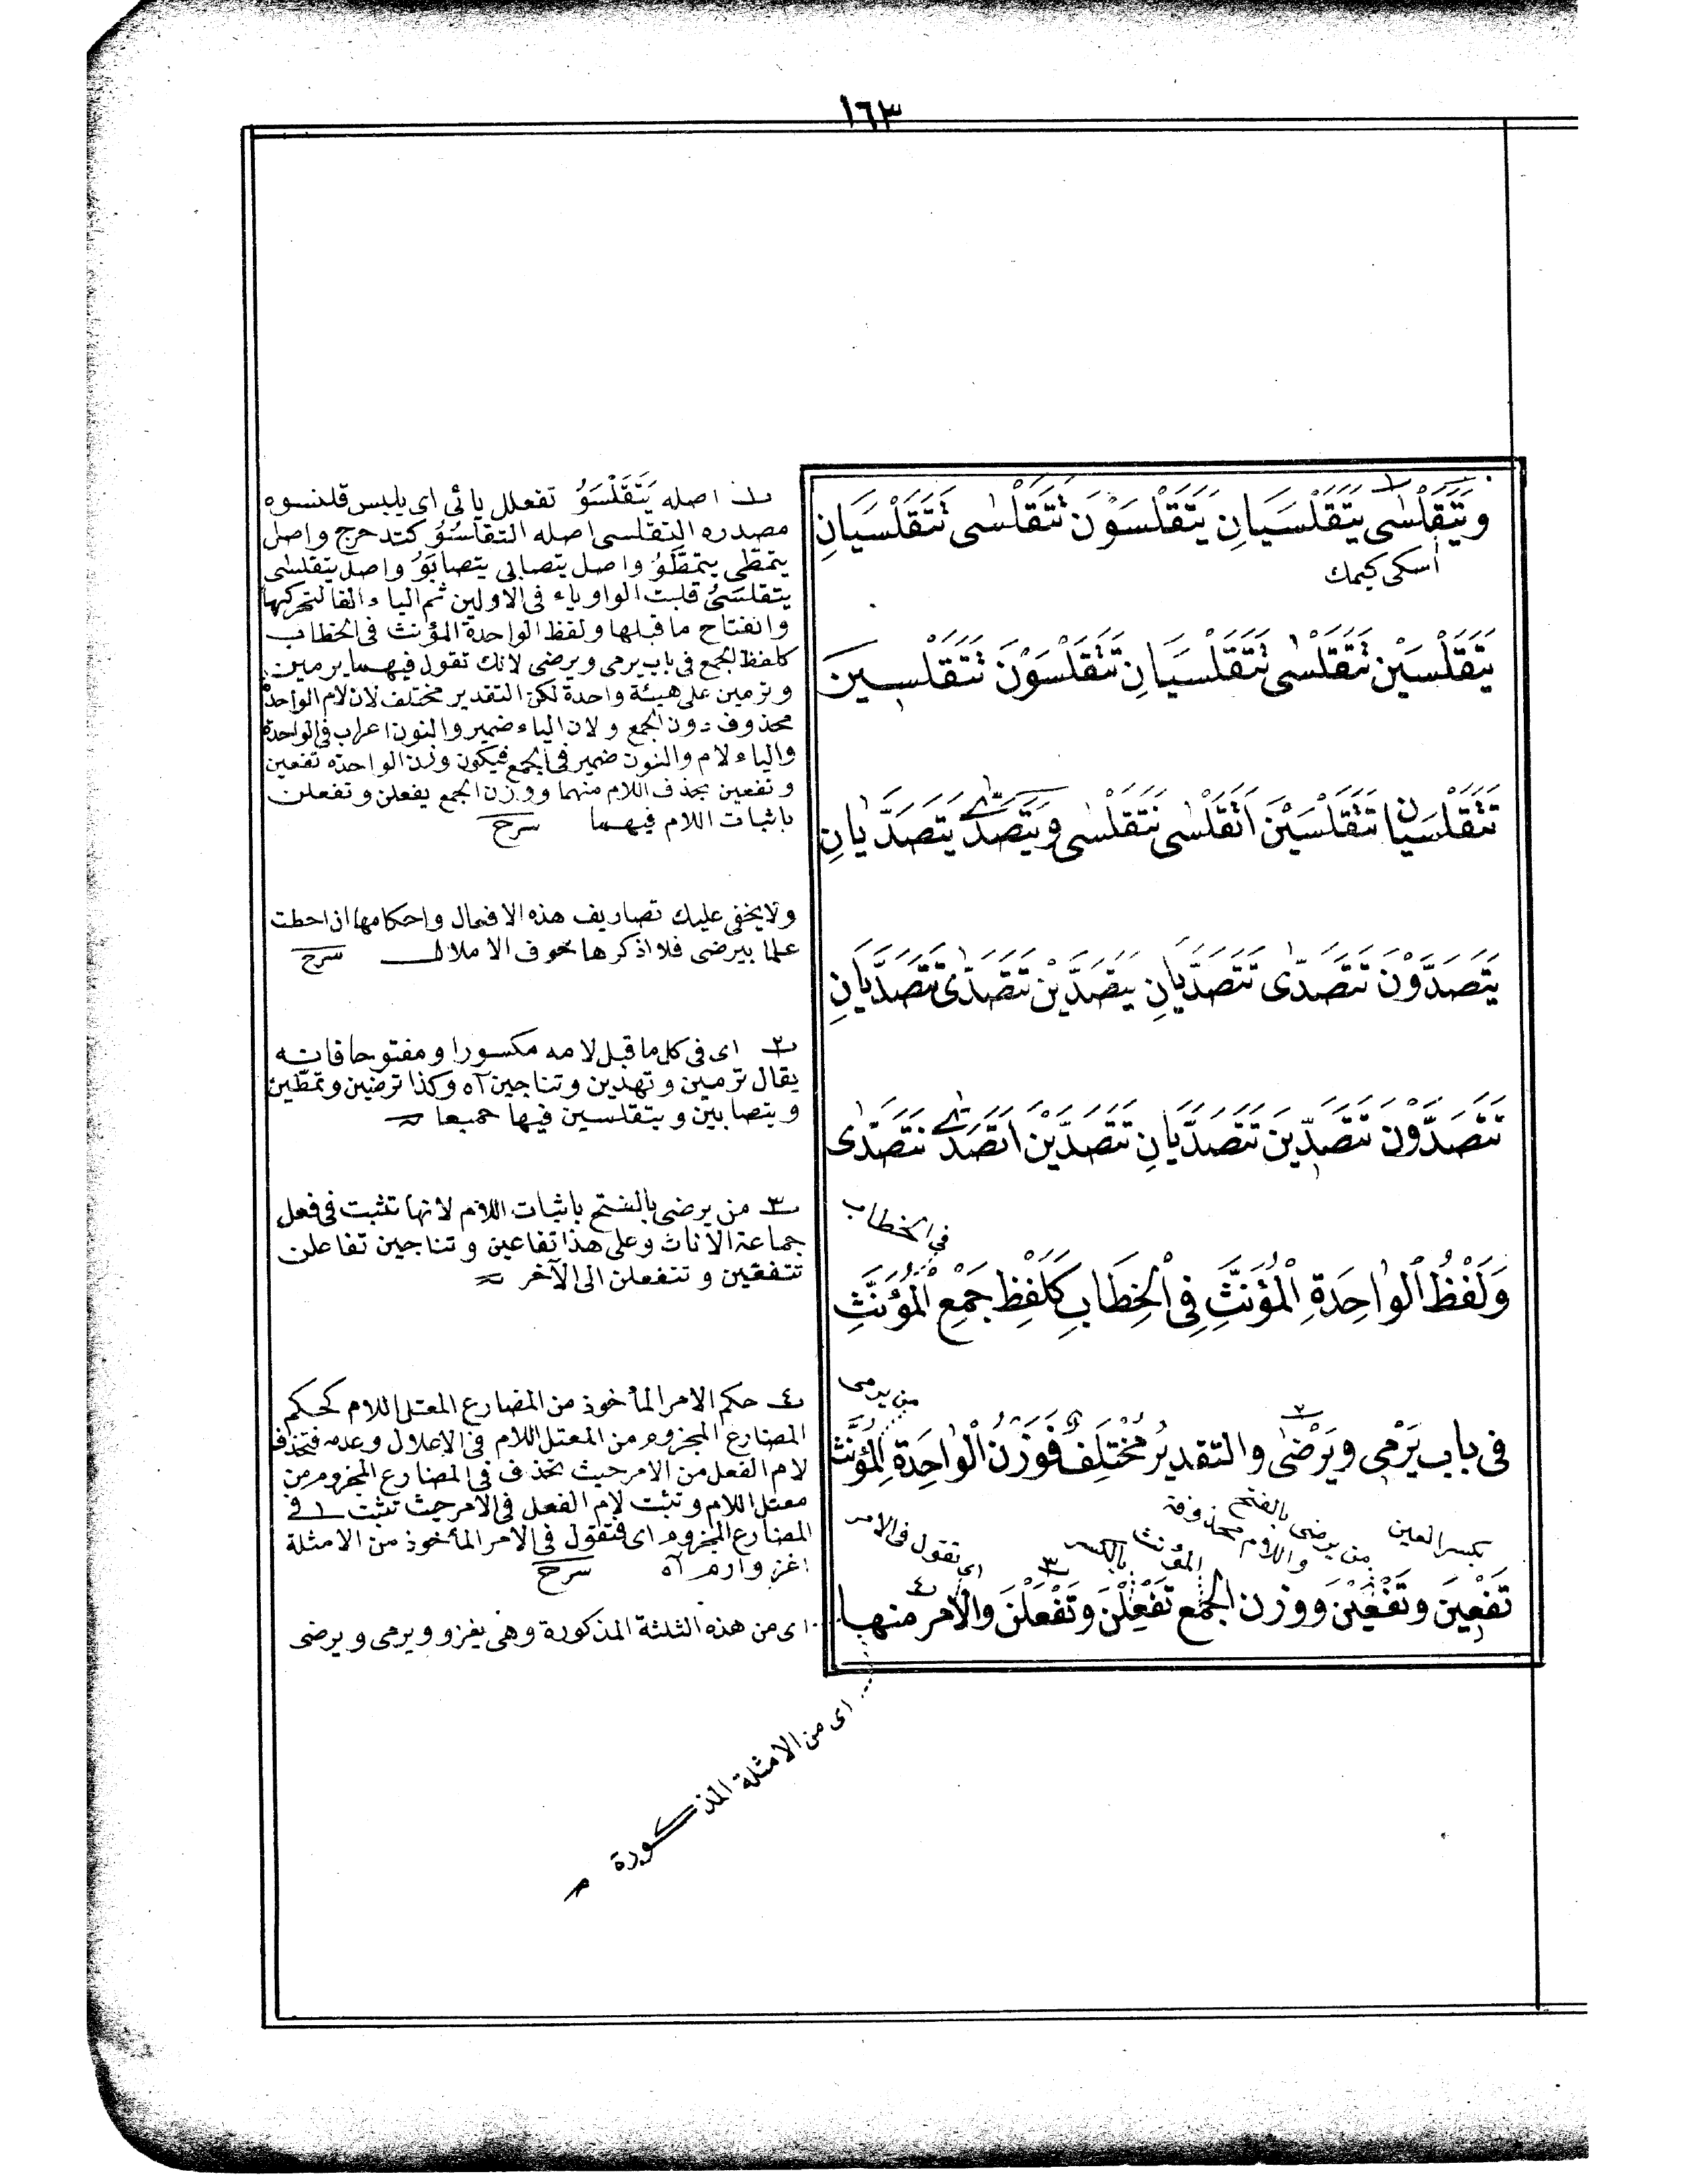 ١٦٣
وَيَتَقَلْسٰى يَتَقَلْسَيَانِ يَتَقَلْسَوْنَ تَتَقَلْسٰى تَتَقَلْسَيَانِ
اسكى كيمك
يَتَقَلْسَيْنَ تَتَقَلْسٰى تَتَقَلْسَيَانِ تَتَقَلْسَوْنَ تَتَقَلْسَيْنَ
تَتَقَلْسَيَانِ تَتَقَلْسَيْنَ اَتَقَلْسٰى نَتَقَلْسٰى وَيَتَصَدّٰى يَتَصَدَّيَانِ
يَتَصَدَّوْنَ تَتَصَدّٰى تَتَصَدَّيَانِ يَتَصَدَّيْنَ تَتَصَدّٰى تَتَصَدَّيَانِ
تَتَصَدَّوْنَ تَتَصَدَّيْنَ تَتَصَدَّيَانِ تَتَصَدَّيْنَ اَتَصَدّٰى نَتَصَدّٰى
فى الخطاب
وَلَفْظُ الْوٰاحِدَةِ الْمُؤَنَّثِ فِى الْخِطَابِ كَلَفْظِ جَمْعِ الْمُؤَنَّثِ
من يرمى
فى باب يَرْمٖى ويَرْضٰى والتقديرُ مُخْتَلِفٌ فَوَزْنُ الْوٰاحِدَةِ الْمُؤَنَّثِ
بكسر العين من يرضى بالفتح واللام محذوفة المؤنث بالكسر اى تقول فى الامر
تَفْعِينَ وتَفْعَيْنَ ووزن الجمع تَفْعِلْنَ وتَفْعَلْنَ والامر منها
١ اصله يَتَقَلْسَوُ تفعلل يائى اى يلبس قلنسوه
مصدره التقلسى اصله التقلسُوُ كتدحرج واصل
يتمطى يتمطَّوُ واصل يتصابى يتصابَوُ واصل يتقلسى
يتقلسَىُ قلبت الواو ياء فى الاولين ثم الياء الفا لتحركها
وانفتاح ما قبلها ولفظ الواحدة المؤنث فى الخطاب
كلفظ الجمع فى باب يرمى ويرضى لانك تقول فيهما يرمين
وترمين على هيئة واحدة لكن التقدير مختلف لان لام الواحدة
محذوف دون الجمع ولان الياء ضمير والنون اعراب فى الواحدة
والياء لام والنون ضمير فى الجمع فيكون وزن الواحدة تفعين
وتفعين بحذف اللام منهما ووزن الجمع يفعلن وتفعلن
باثبات اللام فيهما شرح
ولا يخفى عليك تصاريف هذه الافعال واحكامها اذا حطت
علما بيرضى فلا اذكرها خوف الاملال شرح
٢ اى فى كل ما قبل لامه مكسورا ومفتوحا فانه
يقال ترمين وتهدين وتناجين آه وكذا ترضين وتمطّين
ويتصابين ويتقلسين فيها جميعا
٣ من يرضى بالفتح باثبات اللام لانها تثبت فى فعل
جماعة الاناث وعلى هذا تفاعين وتناجين تفاعلن
تتفعين وتتفعلن الى الآخر
٤ حكم الامر المأخوذ من المضارع المعتل اللام كحكم
المضارع المجزوم من المعتل اللام فى الاعلال وعدمه فتحذف
لام الفعل من الامر حيث تحذف فى المضارع المجزوم من
معتل اللام وتثبت لام الفعل فى الامر حيث تثبت فى
المضارع المجزوم اى فتقول فى الامر المأخوذ من الامثلة
اغز وارم آه شرح
اى من هذه الثلثة المذكورة وهى يغزو ويرمى ويرضى
اى من الامثلة المذكورة